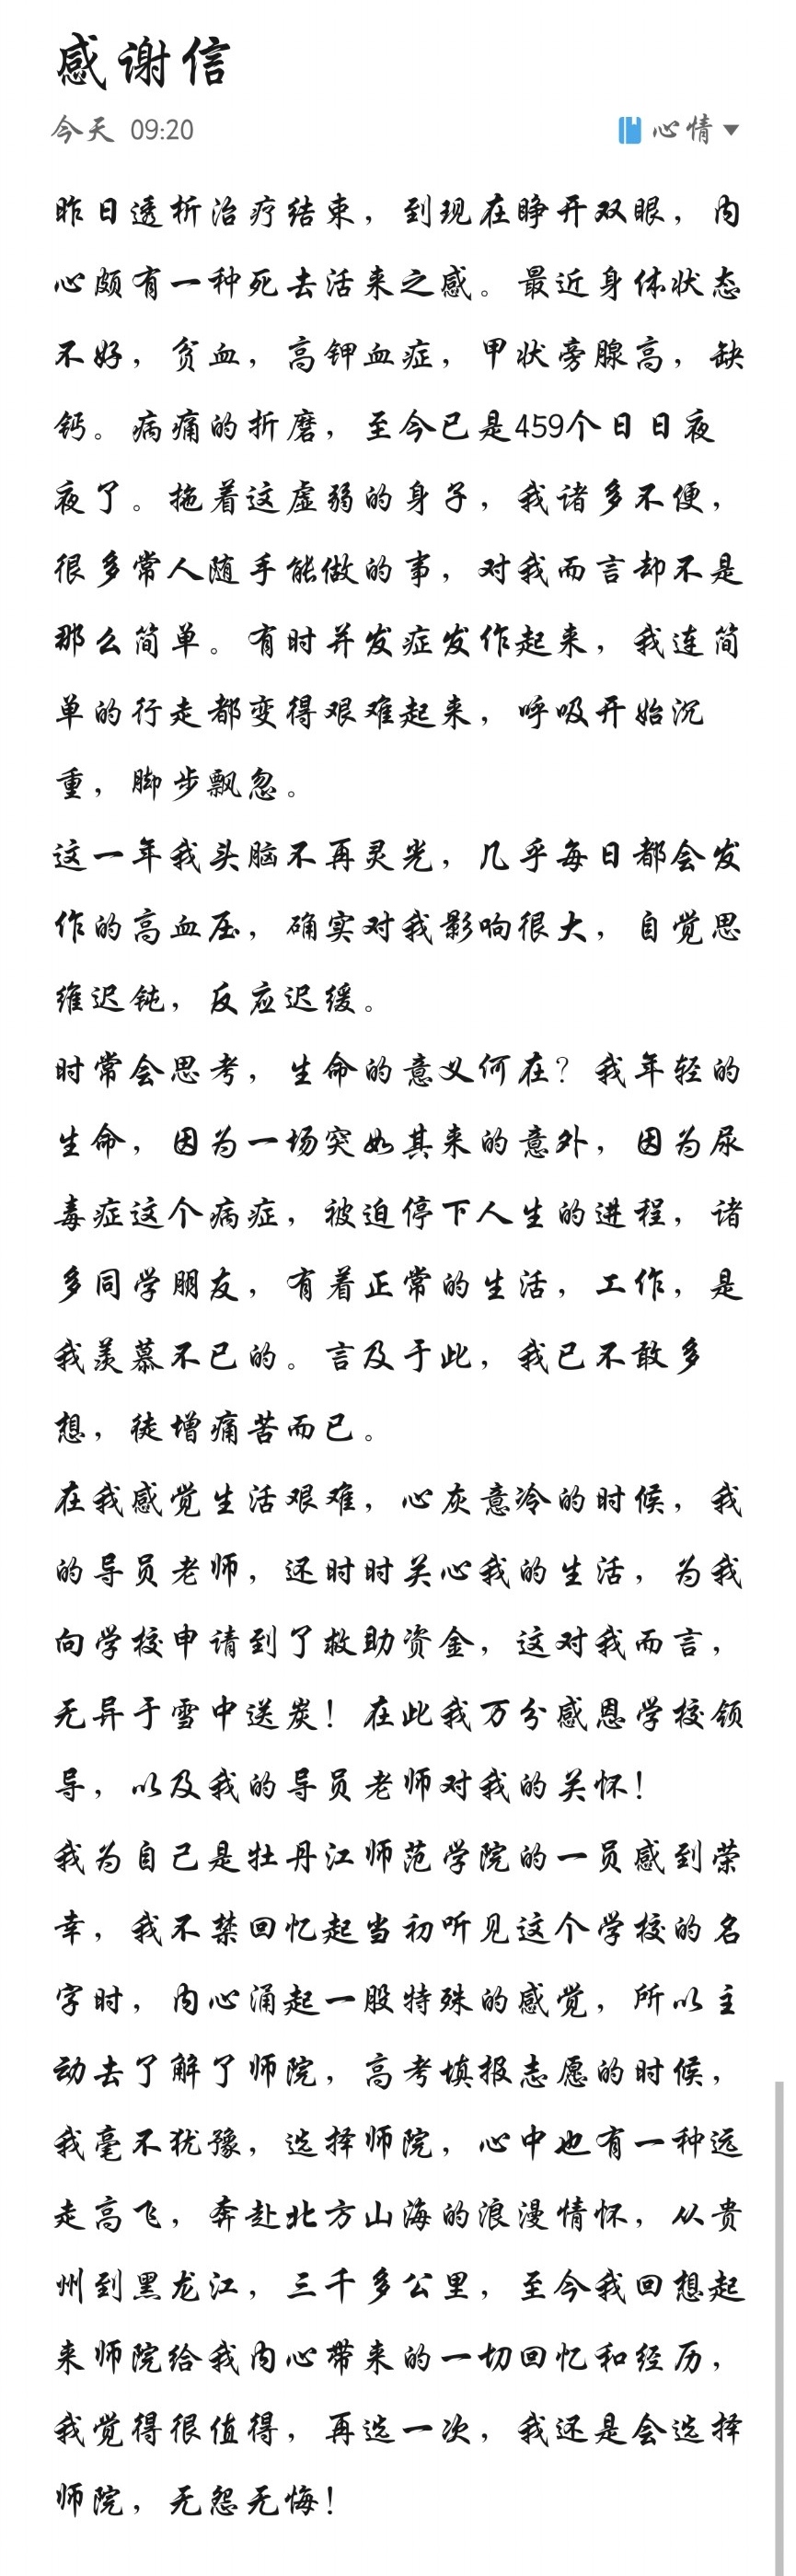 感谢信
今天 09:20 心情
昨日透析治疗结束，到现在睁开双眼，内
心颇有一种死去活来之感。最近身体状态
不好，贫血，高钾血症，甲状旁腺高，缺
钙。病痛的折磨，至今已是459个日日夜
夜了。拖着这虚弱的身子，我诸多不便，
很多常人随手能做的事，对我而言却不是
那么简单。有时并发症发作起来，我连简
单的行走都变得艰难起来，呼吸开始沉
重，脚步飘忽。
这一年我头脑不再灵光，几乎每日都会发
作的高血压，确实对我影响很大，自觉思
维迟钝，反应迟缓。
时常会思考，生命的意义何在？我年轻的
生命，因为一场突如其来的意外，因为尿
毒症这个病症，被迫停下人生的进程，诸
多同学朋友，有着正常的生活，工作，是
我羡慕不已的。言及于此，我已不敢多
想，徒增痛苦而已。
在我感觉生活艰难，心灰意冷的时候，我
的导员老师，还时时关心我的生活，为我
向学校申请到了救助资金，这对我而言，
无异于雪中送炭！在此我万分感恩学校领
导，以及我的导员老师对我的关怀！
我为自己是牡丹江师范学院的一员感到荣
幸，我不禁回忆起当初听见这个学校的名
字时，内心涌起一股特殊的感觉，所以主
动去了解了师院，高考填报志愿的时候，
我毫不犹豫，选择师院，心中也有一种远
走高飞，奔赴北方山海的浪漫情怀，从贵
州到黑龙江，三千多公里，至今我回想起
来师院给我内心带来的一切回忆和经历，
我觉得很值得，再选一次，我还是会选择
师院，无怨无悔！